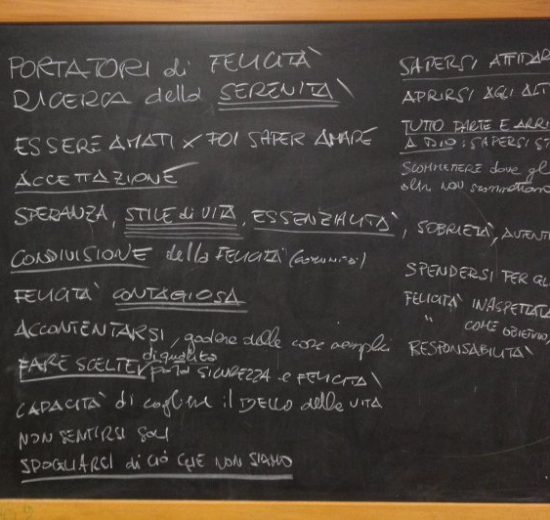 PORTATORI di FELICITÀ
RICERCA della SERENITÀ
ESSERE AMATI x POI SAPER AMARE
ACCETTAZIONE
SPERANZA, STILE di VITA, ESSENZIALITÀ, SOBRIETÀ, AUTENTI
CONDIVISIONE della FELICITÀ (comunità)
FELICITÀ CONTAGIOSA
ACCONTENTARSI, godere delle cose semplici
FARE SCELTE di qualità
porta SICUREZZA e FELICITÀ
CAPACITÀ di cogliere il BELLO della VITA
NON SENTIRSI SOLI
SPOGLIARCI di CIÒ CHE NON SIAMO
SAPERSI AFFIDAR
APRIRSI AGLI ALT
TUTTO PARTE E ARRI
A DIO: SAPERSI ST
SCOMMETTERE dove gl
altri non scommettono
SPENDERSI PER GL
FELICITÀ INASPETTATA
" COME OBIETTIVO,
RESPONSABILITÀ